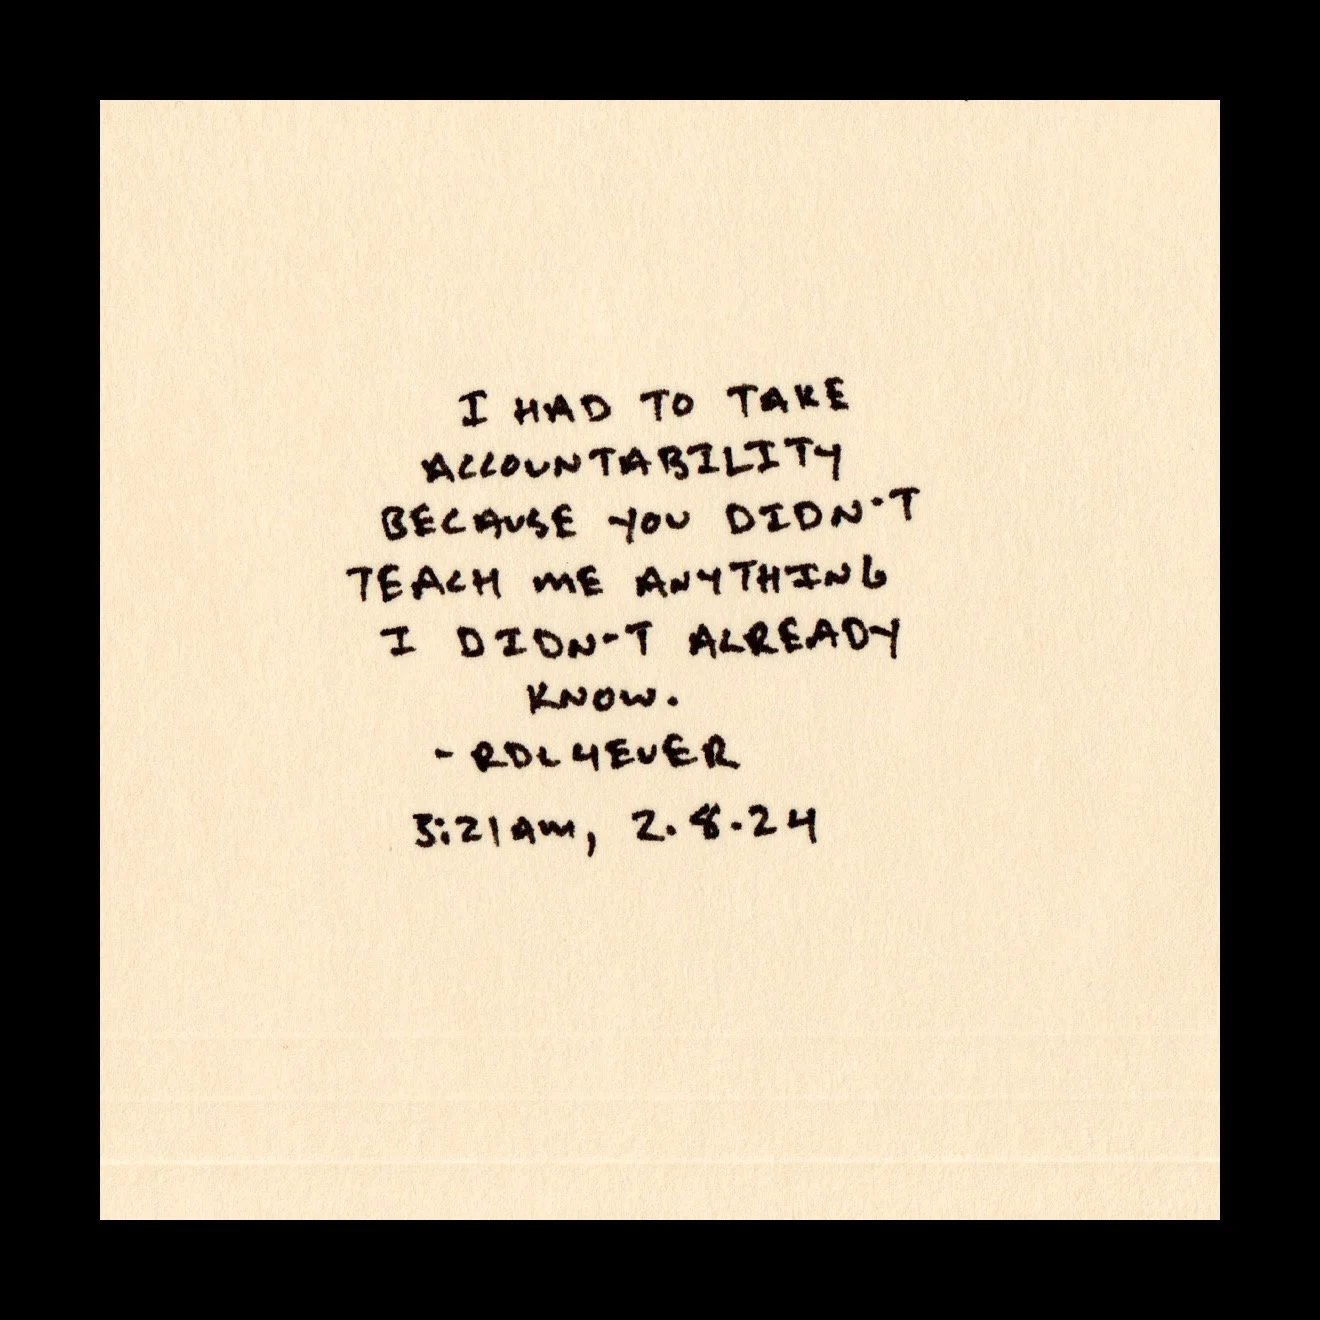 I HAD TO TAKE
ACCOUNTABILITY
BECAUSE YOU DIDN'T
TEACH ME ANYTHING
I DIDN'T ALREADY
KNOW.
- RDL4EVER
3:21AM, 2.8.24